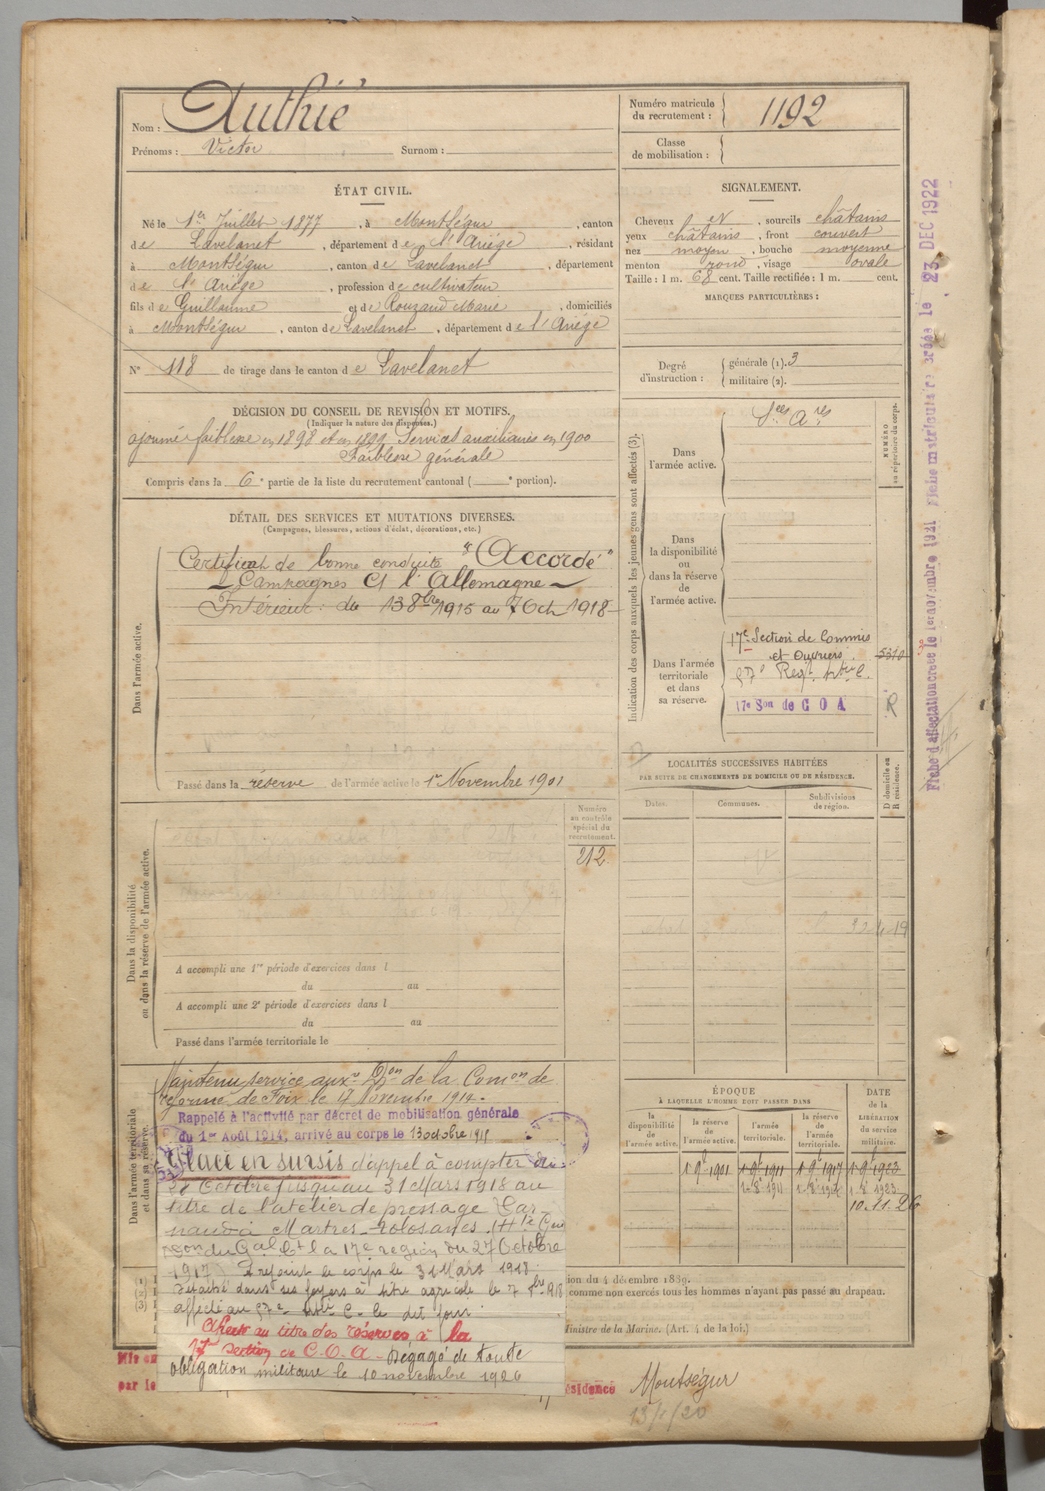 Nom : Authié
Prénoms : Victor Surnom :
Numéro matricule du recrutement : 1192
Classe de mobilisation :
ÉTAT CIVIL.
Né le 1er Juillet 1877, à Montségur, canton
de Lavelanet, département de l'Ariége, résidant
à Montségur, canton de Lavelanet, département
de l'Ariége, profession de cultivateur
fils de Guillaume et de Rouzaud Marie, domiciliés
à Montségur, canton de Lavelanet, département de l'Ariége
N° 118 de tirage dans le canton de Lavelanet
SIGNALEMENT.
Cheveux et, sourcils châtains
yeux châtains, front couvert
nez moyen, bouche moyenne
menton rond, visage ovale
Taille : 1 m. 68 cent. Taille rectifiée : 1 m. cent.
MARQUES PARTICULIÈRES :
Degré d'instruction : générale (1). 3
militaire (2).
DÉCISION DU CONSEIL DE REVISION ET MOTIFS.
(Indiquer la nature des dispenses.)
ajourné faiblesse en 1898 et en 1899 Services auxiliaires en 1900
Faiblesse générale
Compris dans la 6e partie de la liste du recrutement cantonal ( e portion).
DÉTAIL DES SERVICES ET MUTATIONS DIVERSES.
(Campagnes, blessures, actions d'éclat, décorations, etc.)
Dans l'armée active.
Certificat de bonne conduite "Accordé"
Campagnes Ct l'Allemagne
Intérieur : du 13 8bre 1915 au 7 Oct 1918
Passé dans la réserve de l'armée active le 1er Novembre 1901
Indication des corps auxquels les jeunes gens sont affectés (3).
NUMÉRO au répertoire du corps.
Dans l'armée active.
Sces Ares
Dans la disponibilité ou dans la réserve de l'armée active.
Dans l'armée territoriale et dans sa réserve.
17e Section de Commis
et Ouvriers 5310
57e Regt
17e Son de C O A R
LOCALITÉS SUCCESSIVES HABITÉES
PAR SUITE DE CHANGEMENTS DE DOMICILE OU DE RÉSIDENCE.
Dates. Communes. Subdivisions de région. D domicile ou R résidence.
Dans la disponibilité ou dans la réserve de l'armée active.
Numéro au contrôle spécial du recrutement.
212
A accompli une 1re période d'exercices dans l
du au
A accompli une 2e période d'exercices dans l
du au
Passé dans l'armée territoriale le
Dans l'armée territoriale et dans sa réserve.
Maintenu service auxre Don de la Comon de
réforme de Foix le 17 Novembre 1914.
Rappelé à l'activité par décret de mobilisation générale
du 1er Août 1914, arrivé au corps le 13 octobre 1915
Placé en sursis d'appel à compter du
Octobre jusqu'au 31 Mars 1918 au
titre de l'atelier de pressage Car
naud à Martres-Tolosanes
du Gal Ct la 17e region du 27 Octobre
1917 A rejoint le corps le 31 Mars 1918.
Détaché dans ses foyers à titre agricole le 7 8bre 1918
affecté au 57e le dit jour.
Affecté au titre des réserves à la
17e section de C.O.A. Dégagé de toute
obligation militaire le 10 novembre 1926
ÉPOQUE
À LAQUELLE L'HOMME DOIT PASSER DANS
la disponibilité de l'armée active. la réserve de l'armée active. l'armée territoriale. la réserve de l'armée territoriale.
DATE de la LIBÉRATION du service militaire.
1 9e 1901 1 9e 1911 1 9e 1917 1 9e 1923
1-8e 1911 1-8e 1923
10.11.26
ion du 4 décembre 1889.
comme non exercés tous les hommes n'ayant pas passé au drapeau.
Ministre de la Marine. (Art. 4 de la loi.)
Mis en
par le
résidence Montségur
13/1/20
Fiche d'affectation créée le 1er novembre 1921 Fiche matriculaire créée le 23 DEC 1922